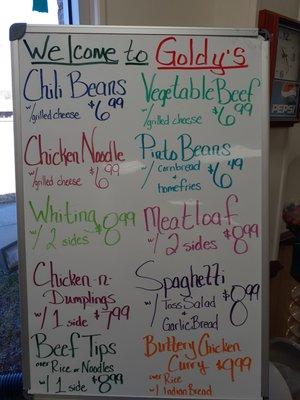 Welcome to Goldy's
Chili Beans
w/grilled cheese $6.99
Vegetable Beef
w/grilled cheese $6.99
Chicken Noodle
w/grilled cheese $6.99
Pinto Beans
w/ Cornbread
+
homefries
$6.49
Whiting
w/ 2 sides $8.99
Meatloaf
w/ 2 sides $8.99
Chicken-n-
Dumplings
w/ 1 side $7.99
Spaghetti
w/ Toss Salad
+
Garlic Bread
$8.99
Beef Tips
over Rice or Noodles
w/ 1 side $8.99
Buttery Chicken
Curry $9.99
over Rice
w/ Indian Bread